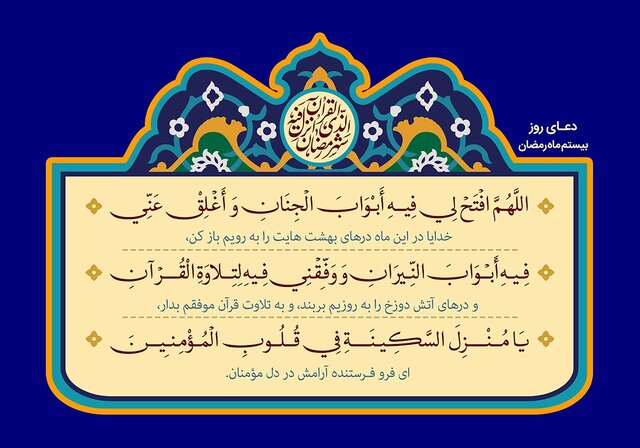 شهر رمضان الذی انزل فیه القرآن
دعـای روز
بیستم ماه رمضان
اللَّهُمَّ افْتَحْ لِي فِيهِ أَبْوَابَ الْجِنَانِ وَ أَغْلِقْ عَنِّي
خدایا در این ماه درهای بهشت هایت را به رویم باز کن،
فِيهِ أَبْوَابَ النِّيرَانِ وَ وَفِّقْنِي فِيهِ لِتِلاوَةِ الْقُرْآنِ
و درهای آتش دوزخ را به روزیم بربند، و به تلاوت قرآن موفقم بدار،
يَا مُنْزِلَ السَّكِينَةِ فِي قُلُوبِ الْمُؤْمِنِينَ
ای فرو فرستنده آرامش در دل مؤمنان.